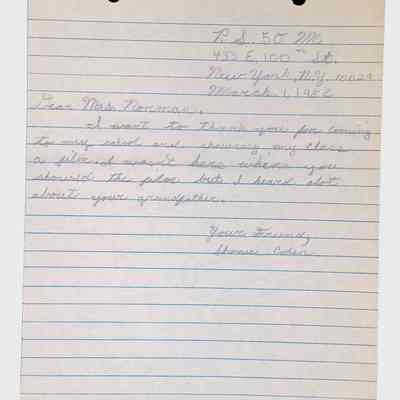 P.S. 50 M
433 E. 100th St.
New York, N.Y. 10029
March 1, 1982
Dear Mrs. Norman,
I want to thank you for coming
to my school and showing my class
a film. I wasn't here when you
showed the film but I heard alot
about your grandfather.
Your Friend,